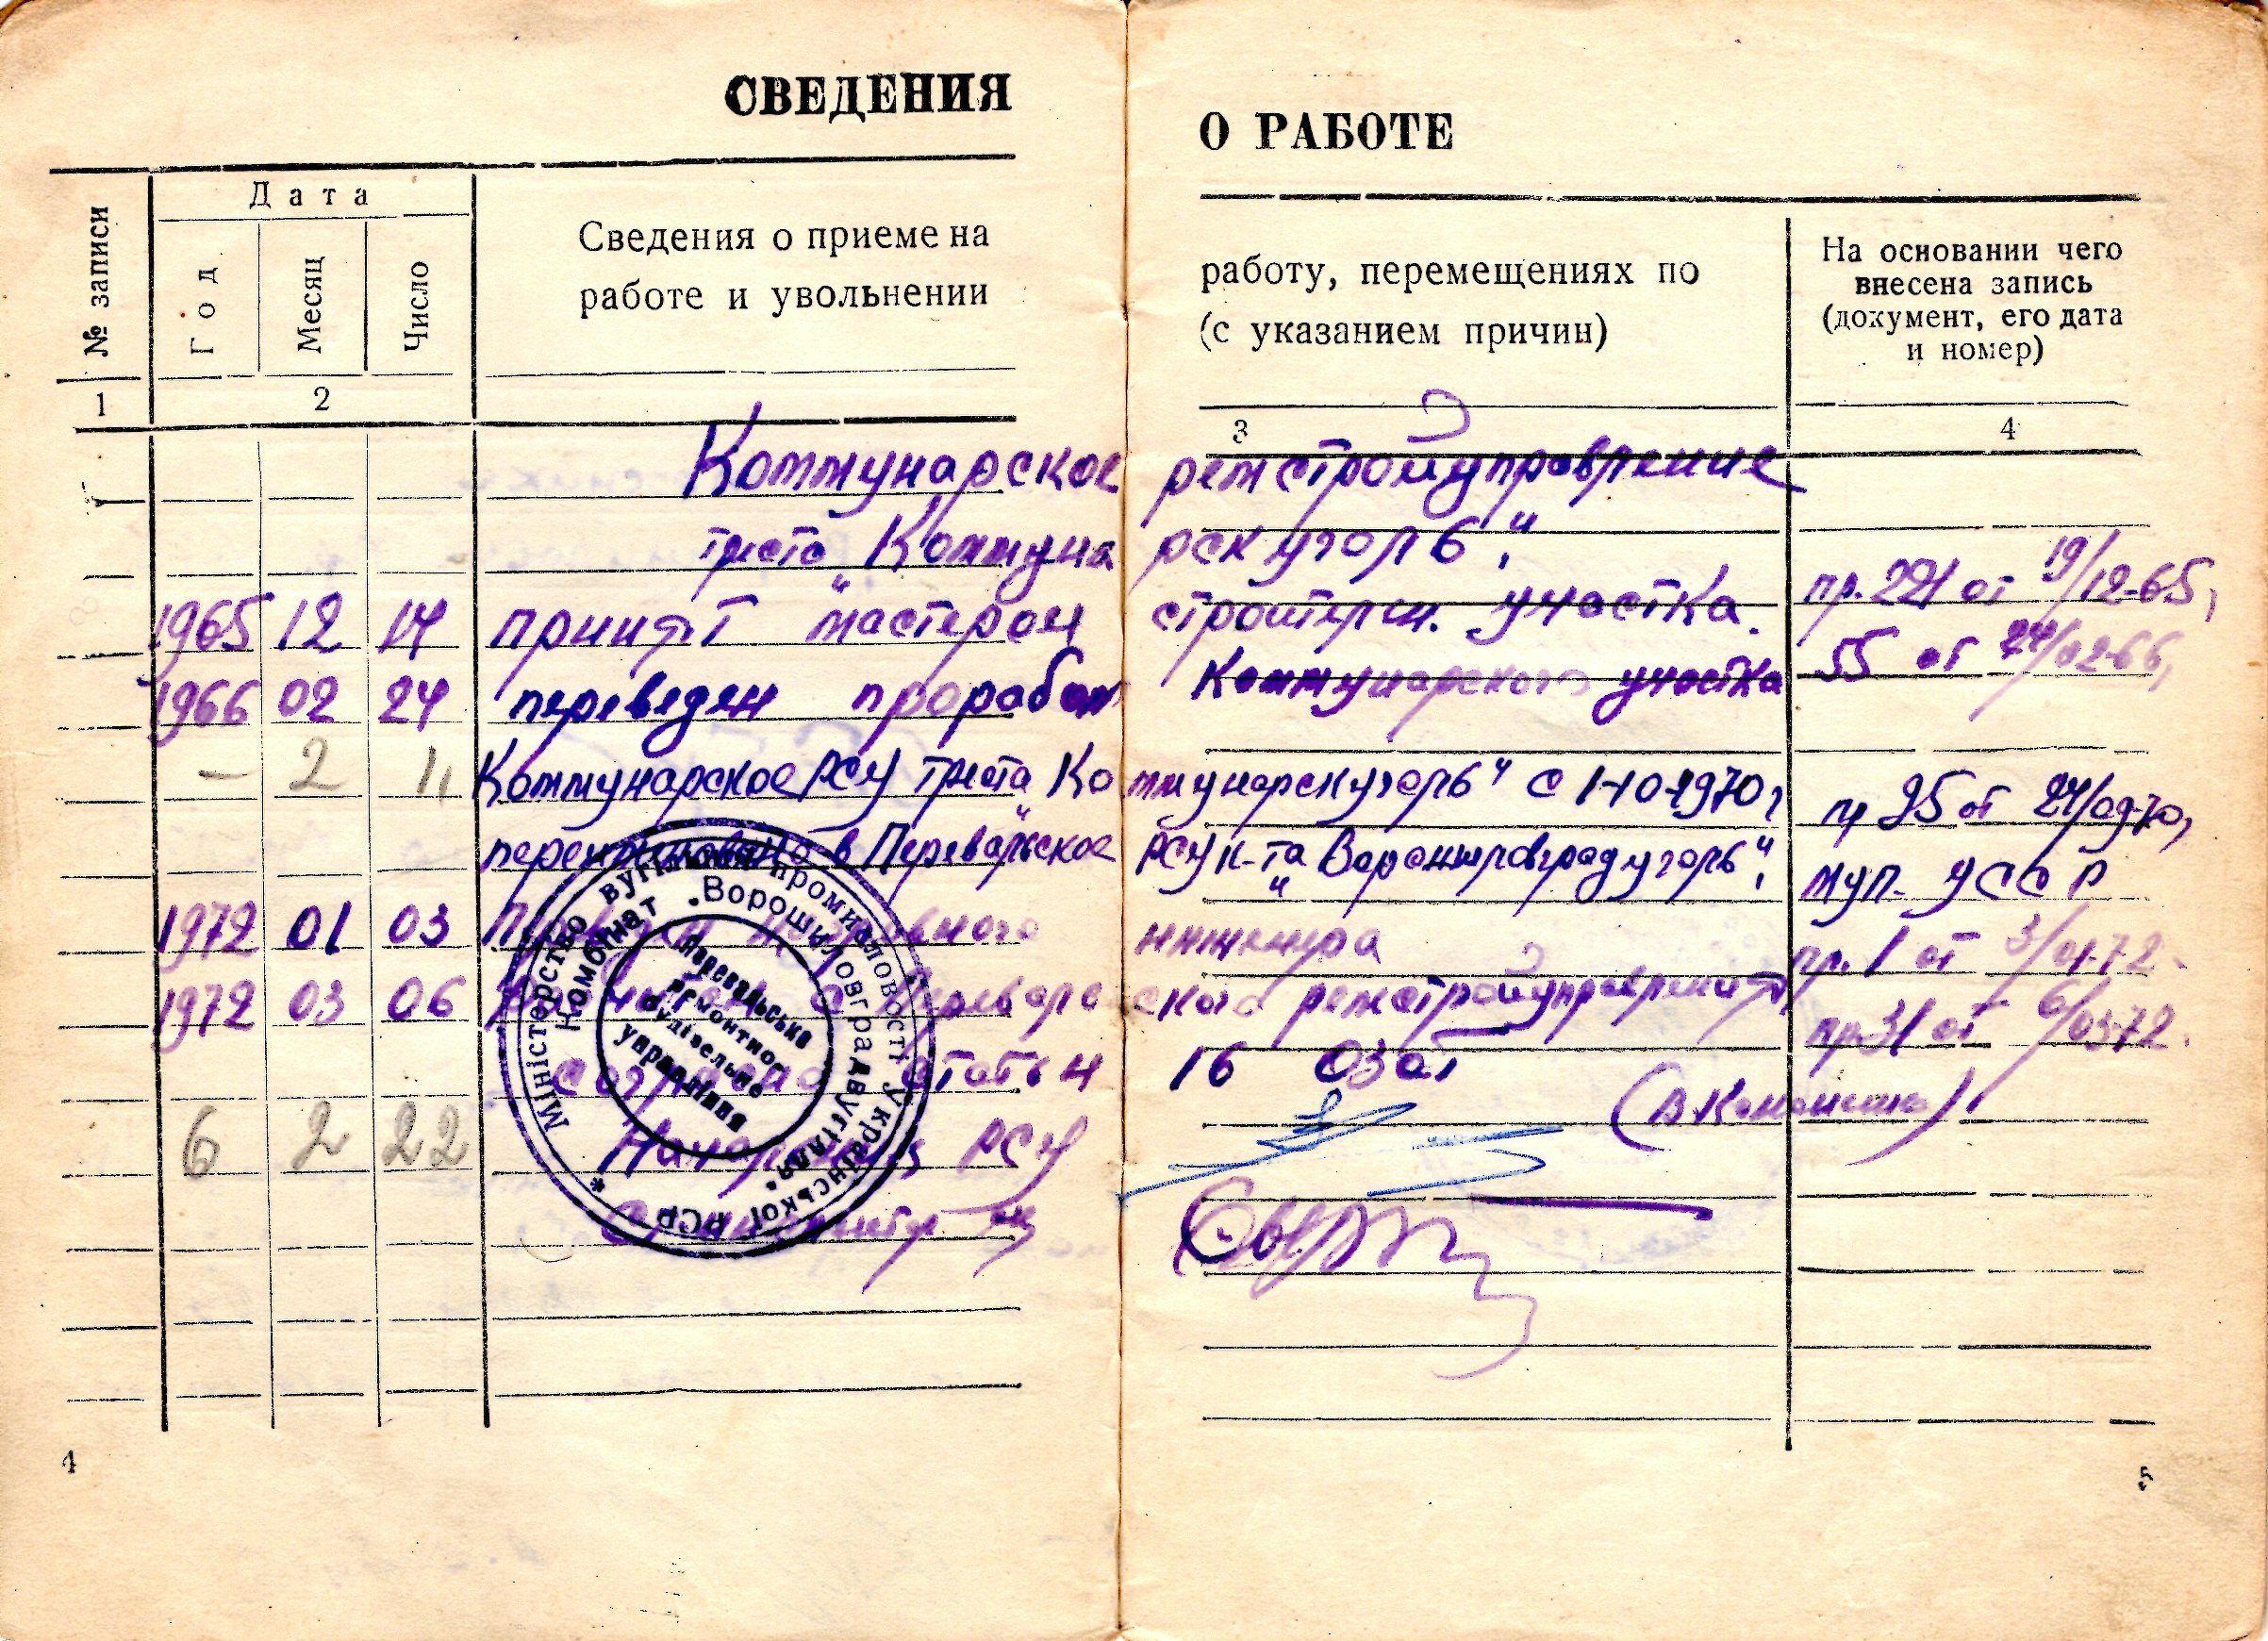 СВЕДЕНИЯ О РАБОТЕ
№ записи
Дата
Год
Месяц
Число
Сведения о приеме на работу, перемещениях по
работе и увольнении (с указанием причин)
На основании чего
внесена запись
(документ, его дата
и номер)
1 2 3 4
Коммунарское ремстройуправление
треста „Коммунарскуголь"
1965 12 17 принят мастером строительн. участка. пр. 221 от 19/12-65,
1966 02 24 переведен прорабом Коммунарского участка 55 от 24/02-66,
— 2 11 Коммунарское РСУ треста „Коммунарскуголь" с 1-10-1970, пр 95 от 24/09-70,
переименовано в Перевальское РСУ к-та „Ворошиловградуголь", МУП УССР
1972 01 03 главного инженера пр. 1 от 3/01-72
1972 03 06 ремстройуправления пр. 31 от 6/03-72.
согласно статьи 16 ОЗОТ
6 2 22 Начальник РСУ
Міністерство вугільної промисловості Української РСР
Комбінат „Ворошиловградвугілля"
Перевальське
ремонтно-
будівельне
управління
4
5